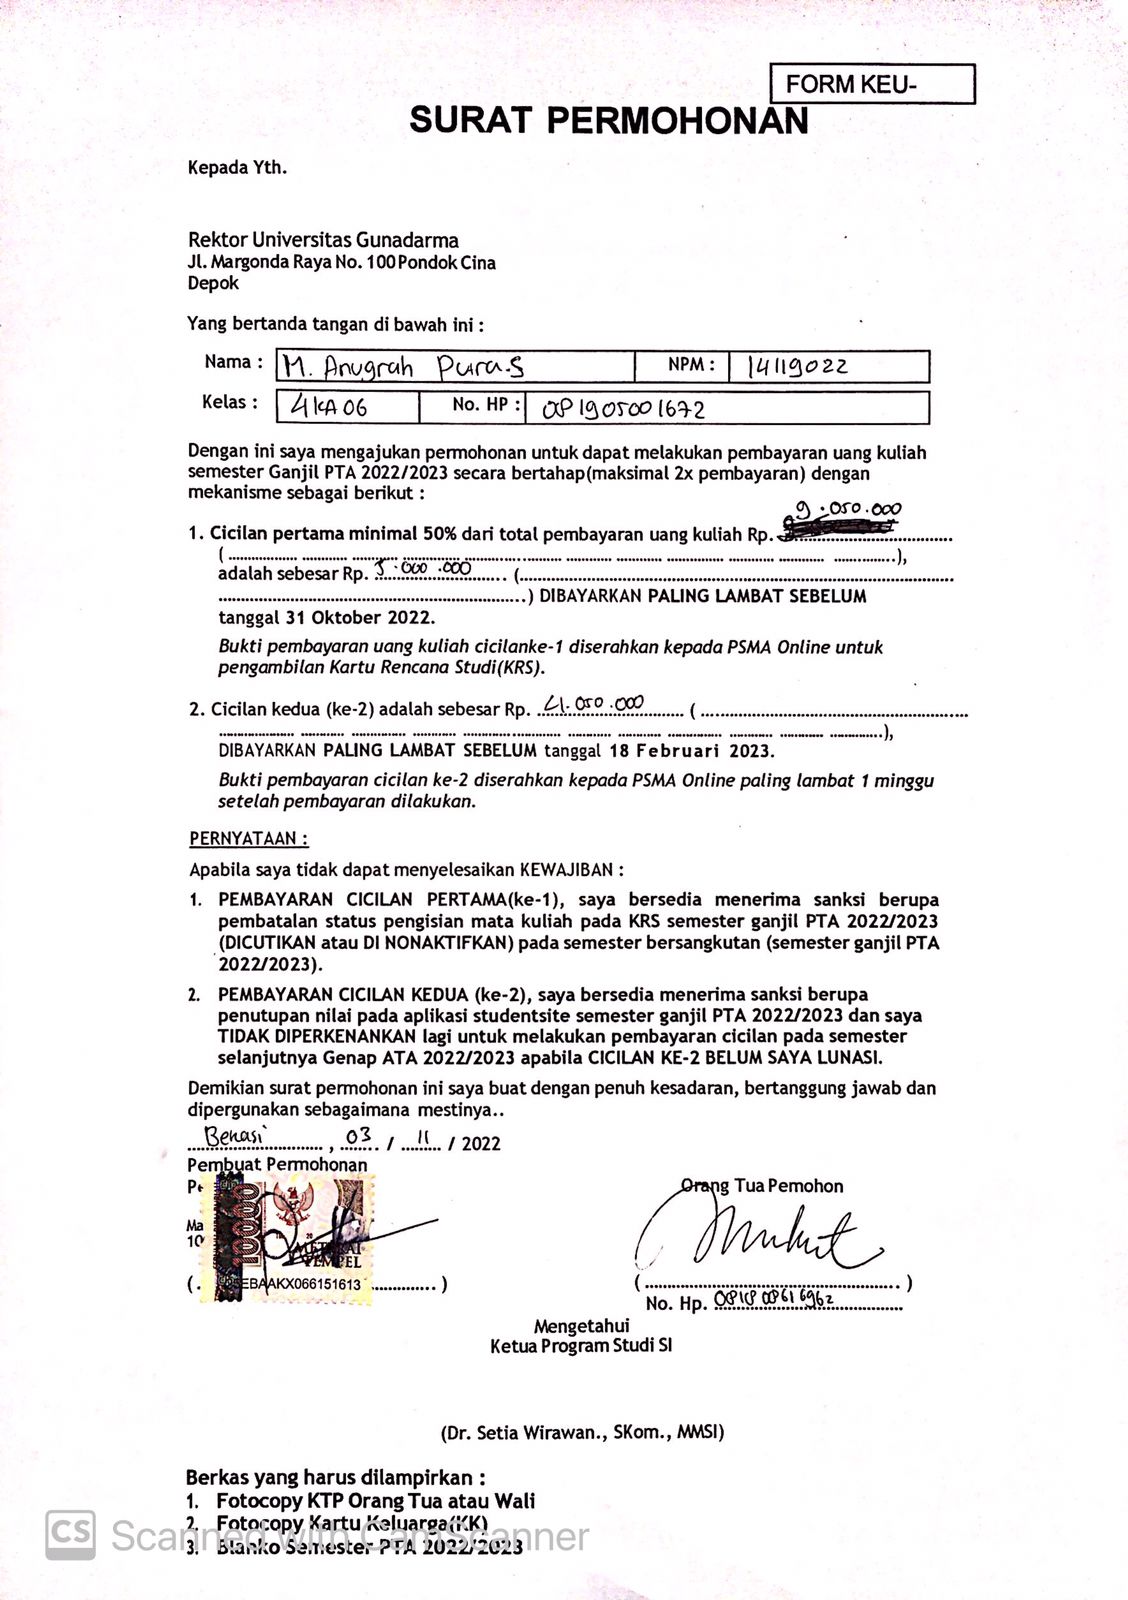 FORM KEU-
SURAT PERMOHONAN
Kepada Yth.
Rektor Universitas Gunadarma
Jl. Margonda Raya No. 100 Pondok Cina
Depok
Yang bertanda tangan di bawah ini :
Nama : M. Anugrah Putra.S NPM : 14119022
Kelas : 4KA06 No. HP : 081905001672
Dengan ini saya mengajukan permohonan untuk dapat melakukan pembayaran uang kuliah
semester Ganjil PTA 2022/2023 secara bertahap(maksimal 2x pembayaran) dengan
mekanisme sebagai berikut :
9.050.000
1. Cicilan pertama minimal 50% dari total pembayaran uang kuliah Rp. ....................
(....................),
adalah sebesar Rp. 5.000.000 (....................
....................) DIBAYARKAN PALING LAMBAT SEBELUM
tanggal 31 Oktober 2022.
Bukti pembayaran uang kuliah cicilanke-1 diserahkan kepada PSMA Online untuk
pengambilan Kartu Rencana Studi(KRS).
2. Cicilan kedua (ke-2) adalah sebesar Rp. 4.050.000 (....................
....................),
DIBAYARKAN PALING LAMBAT SEBELUM tanggal 18 Februari 2023.
Bukti pembayaran cicilan ke-2 diserahkan kepada PSMA Online paling lambat 1 minggu
setelah pembayaran dilakukan.
PERNYATAAN :
Apabila saya tidak dapat menyelesaikan KEWAJIBAN :
1. PEMBAYARAN CICILAN PERTAMA(ke-1), saya bersedia menerima sanksi berupa
pembatalan status pengisian mata kuliah pada KRS semester ganjil PTA 2022/2023
(DICUTIKAN atau DI NONAKTIFKAN) pada semester bersangkutan (semester ganjil PTA
2022/2023).
2. PEMBAYARAN CICILAN KEDUA (ke-2), saya bersedia menerima sanksi berupa
penutupan nilai pada aplikasi studentsite semester ganjil PTA 2022/2023 dan saya
TIDAK DIPERKENANKAN lagi untuk melakukan pembayaran cicilan pada semester
selanjutnya Genap ATA 2022/2023 apabila CICILAN KE-2 BELUM SAYA LUNASI.
Demikian surat permohonan ini saya buat dengan penuh kesadaran, bertanggung jawab dan
dipergunakan sebagaimana mestinya..
Bekasi , 03 / 11 / 2022
Pembuat Permohonan
Orang Tua Pemohon
Ma
10
10000
METERAI
TEMPEL
EBAAKX066151613
(....................)
(....................)
No. Hp. 081808616962
Mengetahui
Ketua Program Studi SI
(Dr. Setia Wirawan., SKom., MMSI)
Berkas yang harus dilampirkan :
1. Fotocopy KTP Orang Tua atau Wali
2. Fotocopy Kartu Keluarga(KK)
3. Blanko Semester PTA 2022/2023
CS Scanned with CamScanner